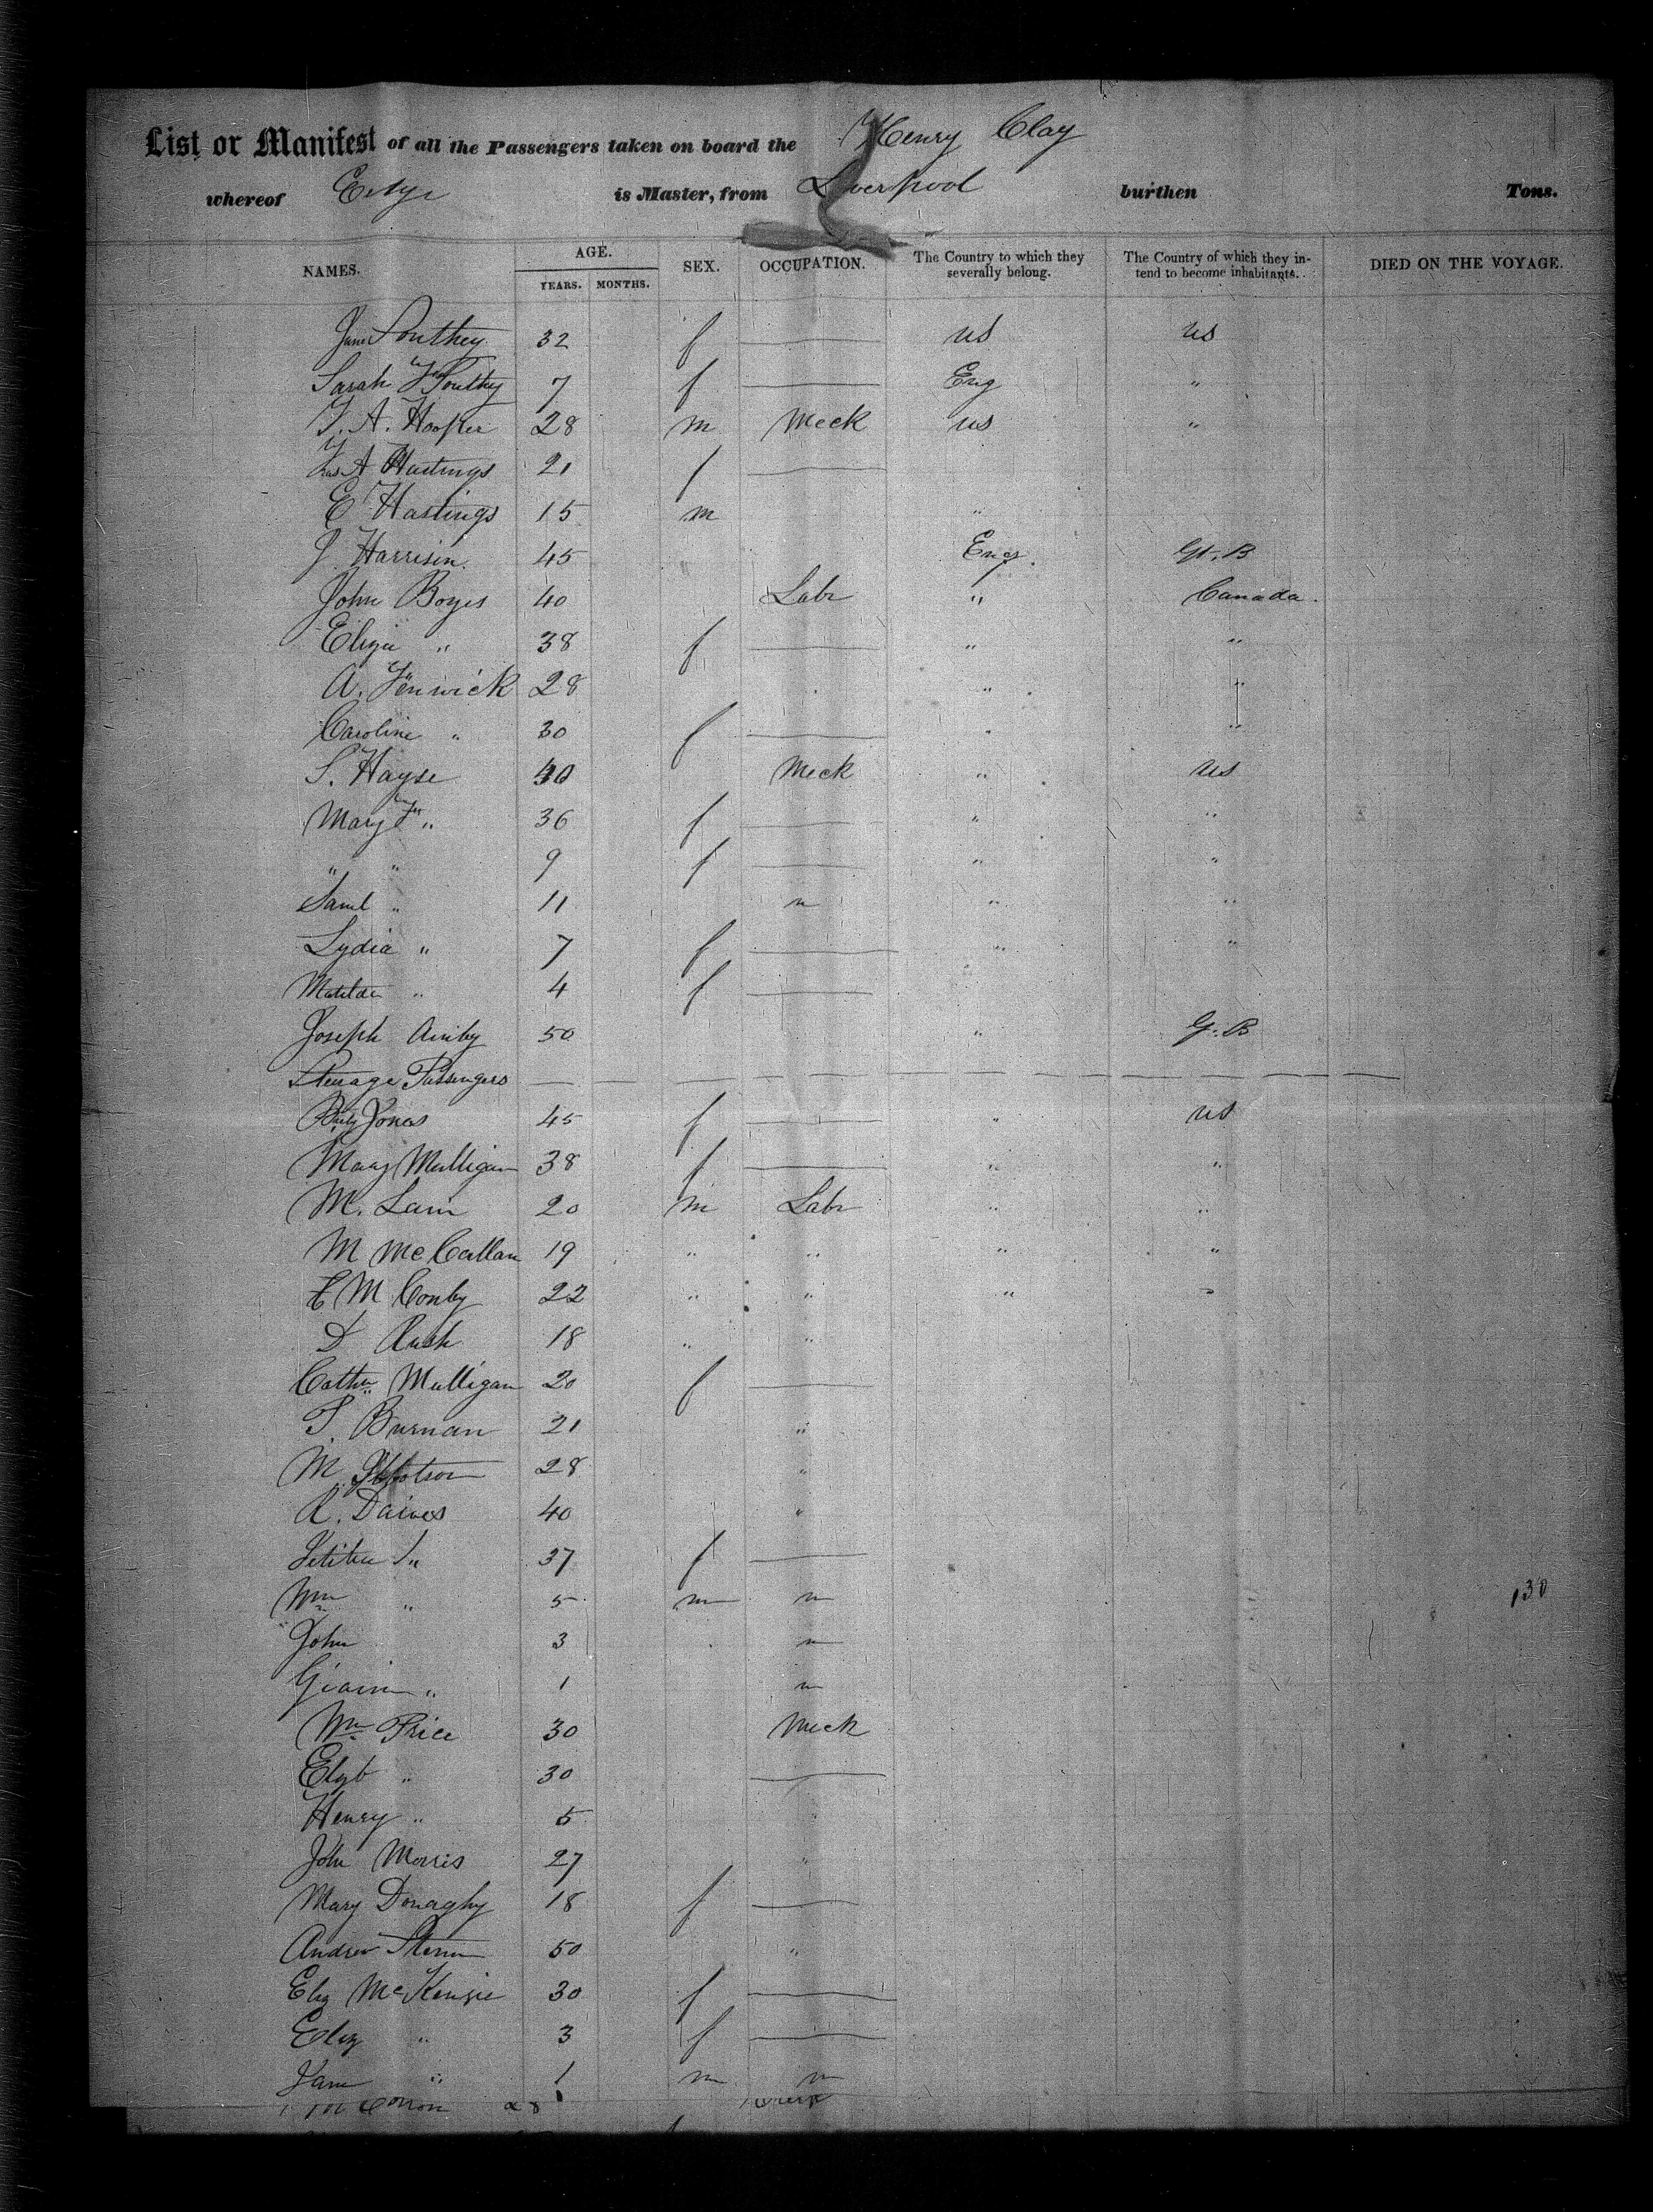 List or Manifest of all the Passengers taken on board the Henry Clay
whereof is Master, from Liverpool burthen Tons.
NAMES. AGE. YEARS. MONTHS. SEX. OCCUPATION. The Country to which they severally belong. The Country of which they intend to become inhabitants. DIED ON THE VOYAGE.
Jane Southey 32 f — us us
Sarah Southy 7 f — Eng "
J. A. Hooper 28 m Meck us "
A Hastings 21 f —
E Hastings 15 m "
J. Harrison 45 " Eng. Gt. B
John Boyes 40 Labr " Canada.
Eliza " 38 f — " "
A. Fenwick 28 " "
Caroline " 30 f — " "
S. Hayse 40 Meck " us
Mary " 36 f — " "
" " 9 f — " "
Saml " 11 " "
Lydia " 7 f — " "
Matilda " 4 f —
Joseph 50 " G. B
Steerage Passengers — — — — —
Jones 45 f — " us
Mary Mulligan 38 f — " "
M. Lain 20 m Labr " "
M McCallan 19 " " " "
M Conby 22 " " " "
D Rush 18 " "
Cathn Mulligan 20 f —
Burnan 21 "
M. Ibbotson 28 "
R. Daives 40 "
Letitia " 37 f —
Wm " 5 m 130
John 3
" 1
Wm Price 30 Meck
Elizt " 30 —
Henry " 5
John Morris 27 "
Mary Donaghy 18 f —
Andrew 50 "
Eliz McKensie 30 f —
Eliz " 3 f —
Jam " 1 m
28